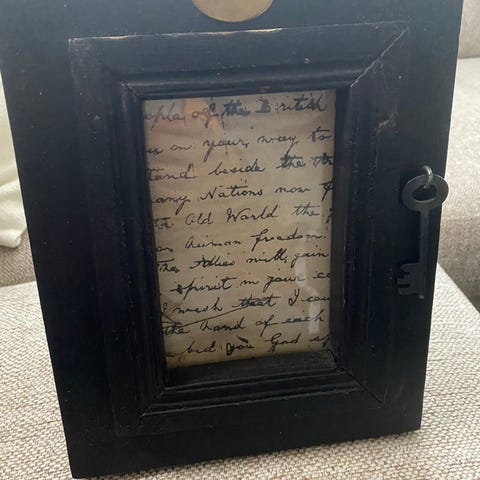 ople of the British
on your way to
tand beside the
any Nations now
the Old World the
human freedom.
The Allies will gain
spirit in your co
I wish that I cou
the hand of each
bid you God s